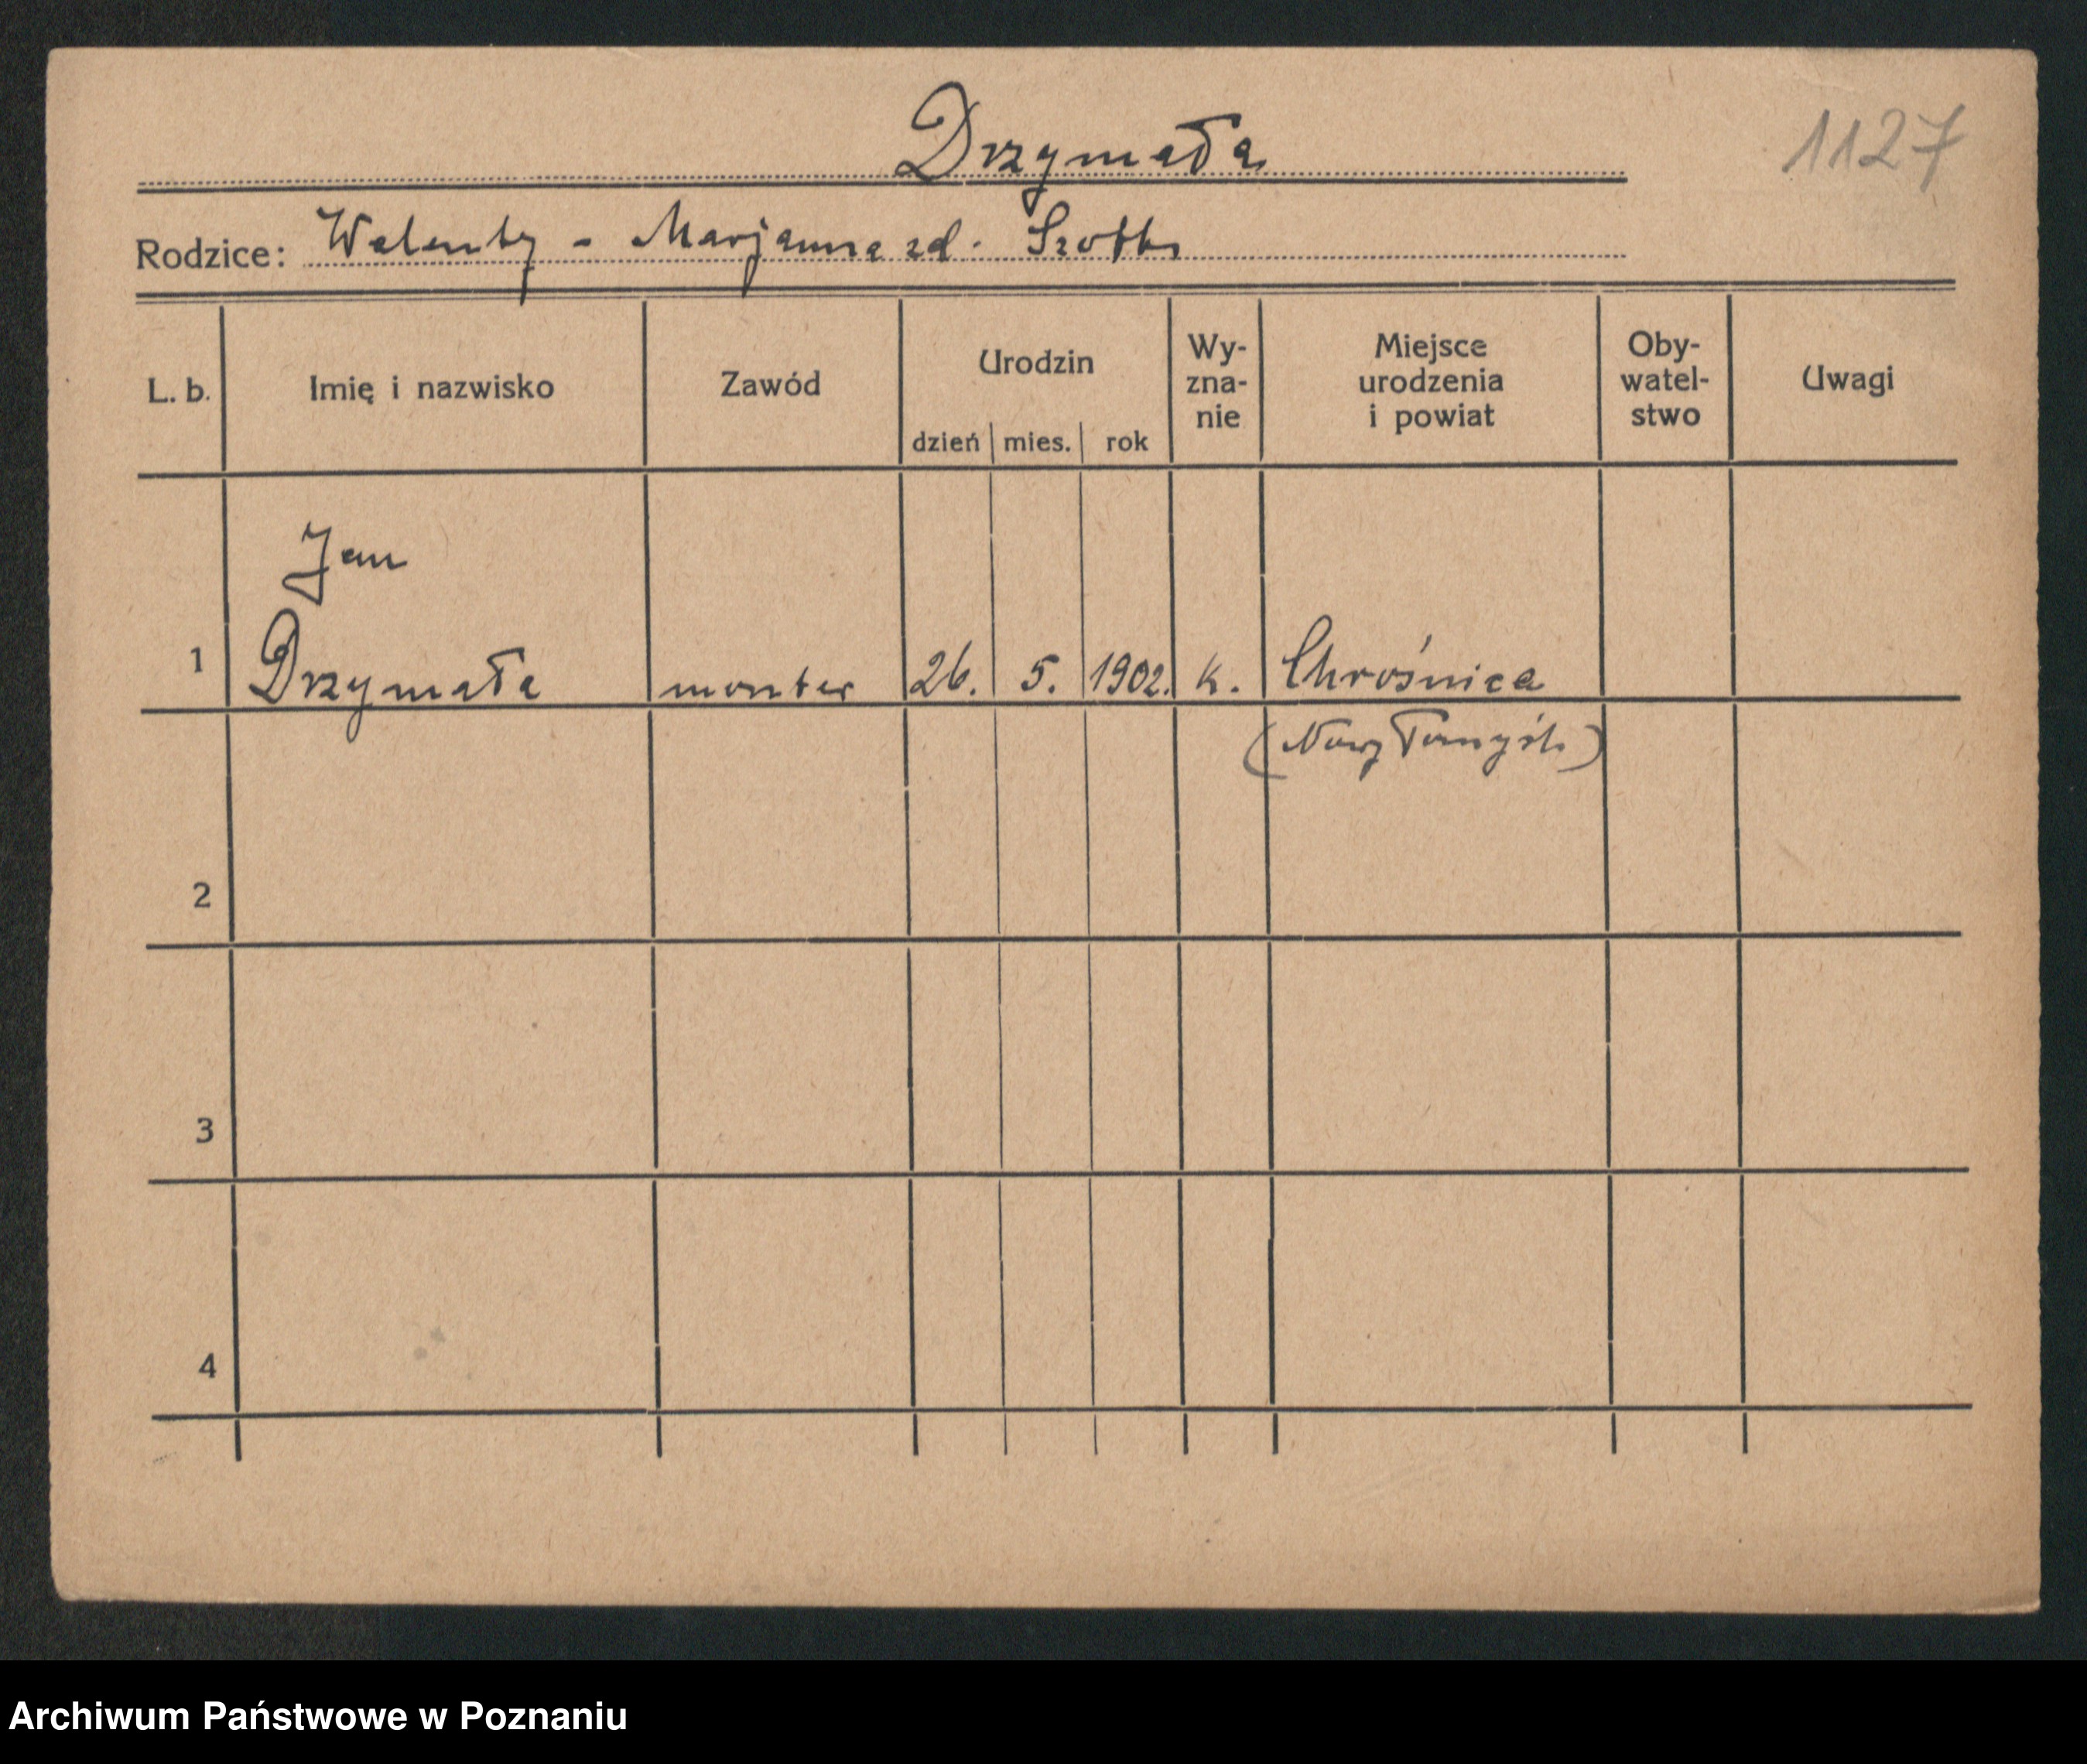 Drzymała
1127
Rodzice: Walenty - Marjanna zd.
L. b.
Imię i nazwisko
Zawód
Urodzin
dzień mies. rok
Wy-
zna-
nie
Miejsce
urodzenia
i powiat
Oby-
watel-
stwo
Uwagi
Jan
1 Drzymała monter 26. 5. 1902. k. Chrośnica
(Nowy Tomyśl)
2
3
4
Archiwum Państwowe w Poznaniu